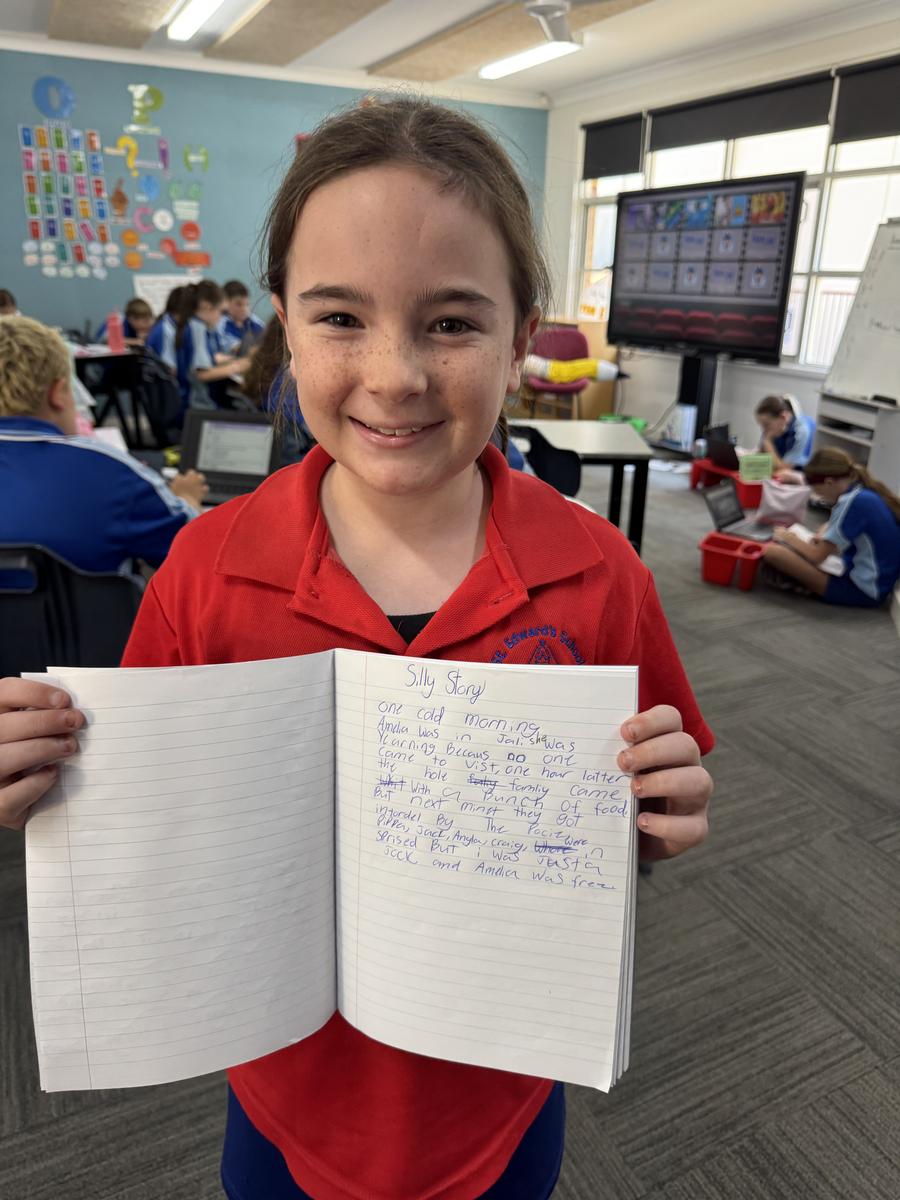 St. Edward's School
Silly Story
one cold morning
Amelia was in Jali she was
Yearning Becaus no one
came to Vist, one hour latter
the hole family came
With a Bunch of food
But next minet they Got
intordel By The Pocie were
Pippa, Jack, Angla, craig, in
sprised But i was Just a
Jock and Amelia was free